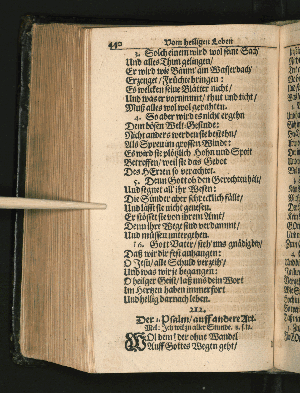 440 Vom heiligen Leben
3. Solch einem wird wol seine Sach/
Und alles Thun gelingen/
Er wird wie Bäum' am Wasserbach/
Erzeget/ Früchte bringen:
Es welcken seine Blätter nicht/
Und was er vornimmt/ thut und ticht/
Muß alles wol gerahten.
4. So aber wird es nicht ergehn
Dem bösen Welt-Gesinde:
Nicht anders werden sie bestehn/
Als Spreu im grossen Winde:
Es wird sie plötzlich Hohn und Spott
Betreffen/ weil sie das Gebot
Des HErren so verachtet.
5. Denn Gott ob den Gerechten hält/
Und segnet all' ihr Wesen:
Die Sünder aber schrecklich fällt/
Und lässt sie nicht genesen.
Er stösset sie von ihrem Amt/
Denn ihrer Wege sind verdammt/
Und müssen untergehen.
6. Gott Vatter/ sieh uns gnädig an/
Daß wir dir fest anhangen:
O Jesu/ alle Schuld verzeih/
Und was wir je begangen:
O heiliger Geist/ laß uns dein Wort
Im Hertzen haben immerfort
Und heilig darnach leben.
212.
Der 1. Psalm/ auff andere Art.
Mel: Ich wil zu aller Stunde. u. s. w.
WOl dem/ der ohne Wandel
Auff Gottes Wegen geht/